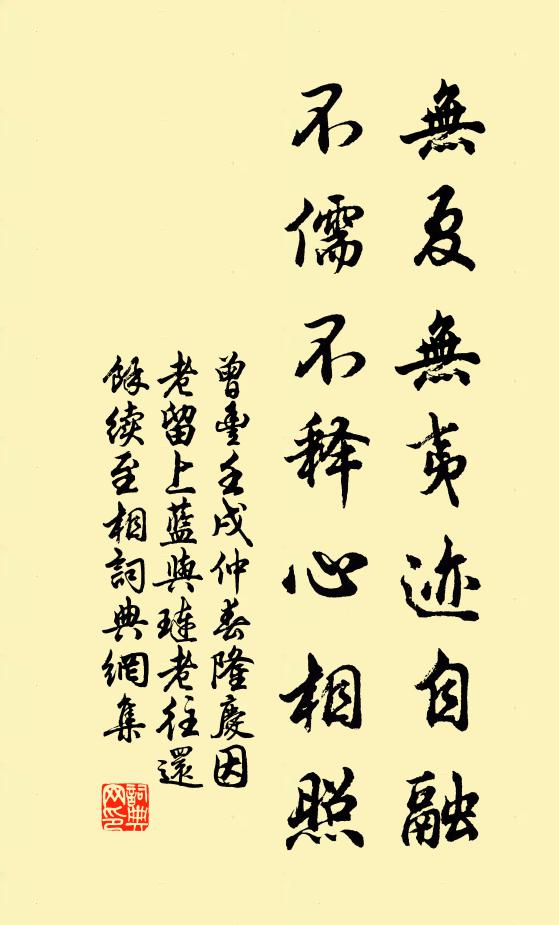 無夏無夷迹自融
不儒不释心相照
曾豐壬戌仲春隆慶因
老留上藍與璉老往還
餘續至相詞典網集
詞典网印